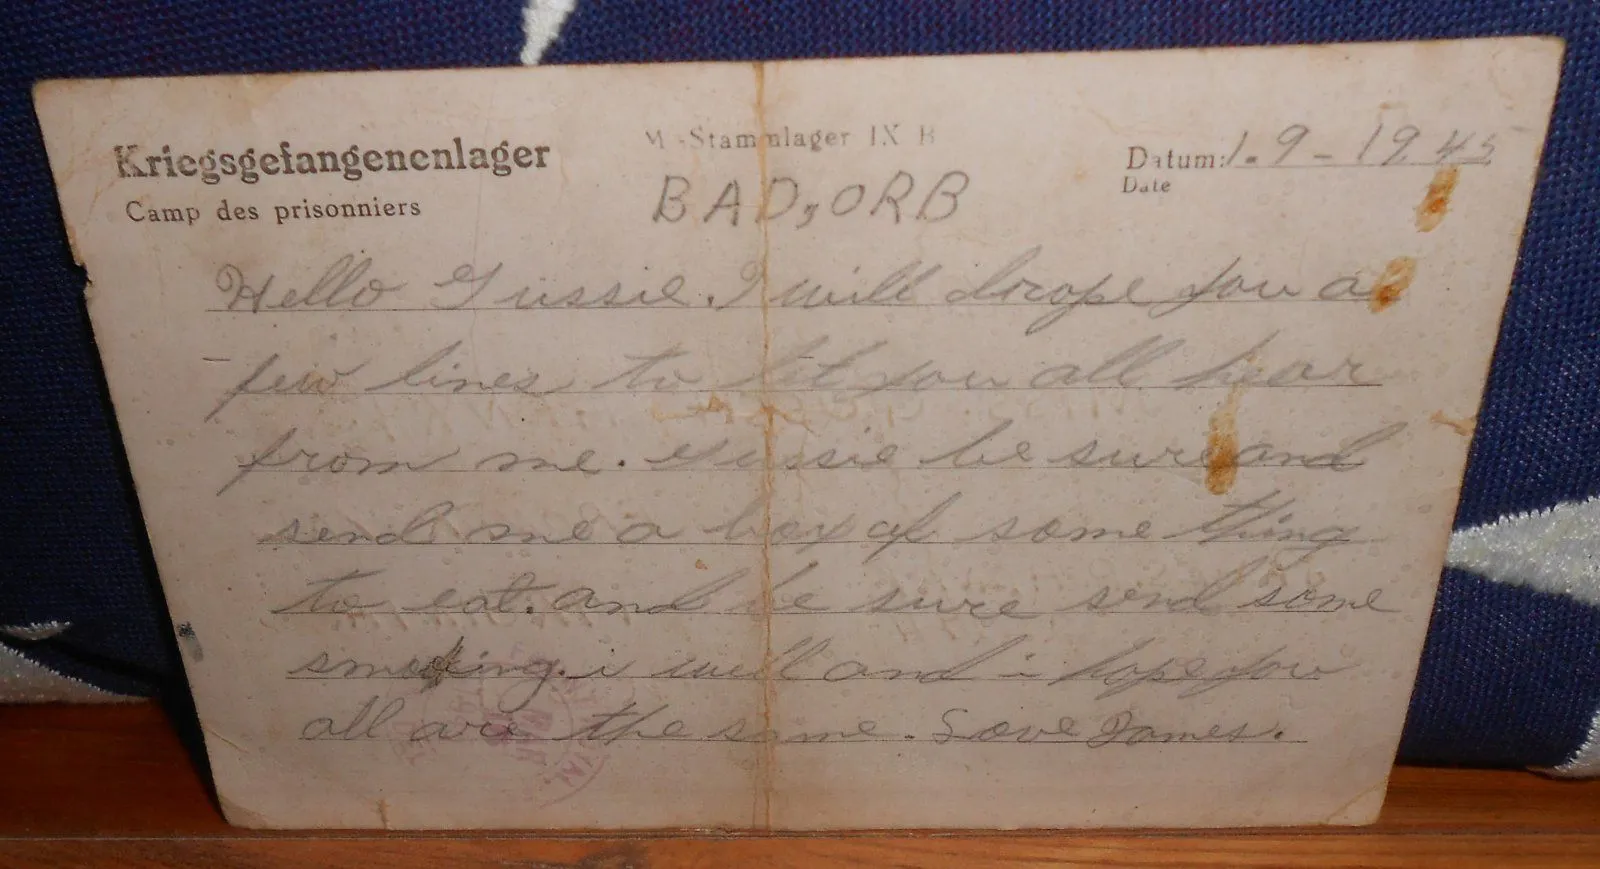 Kriegsgefangenenlager
Camp des prisonniers
M.-Stammlager IX B
BAD, ORB
Datum: 1. 9 - 1945
Date
Hello Gussie. I will drope you a
few lines to let you all hear
from me. Gussie be sure and
send me a box of some thing
to eat. and be sure send some
smoking. i well and i hope you
all are the same. Love James.